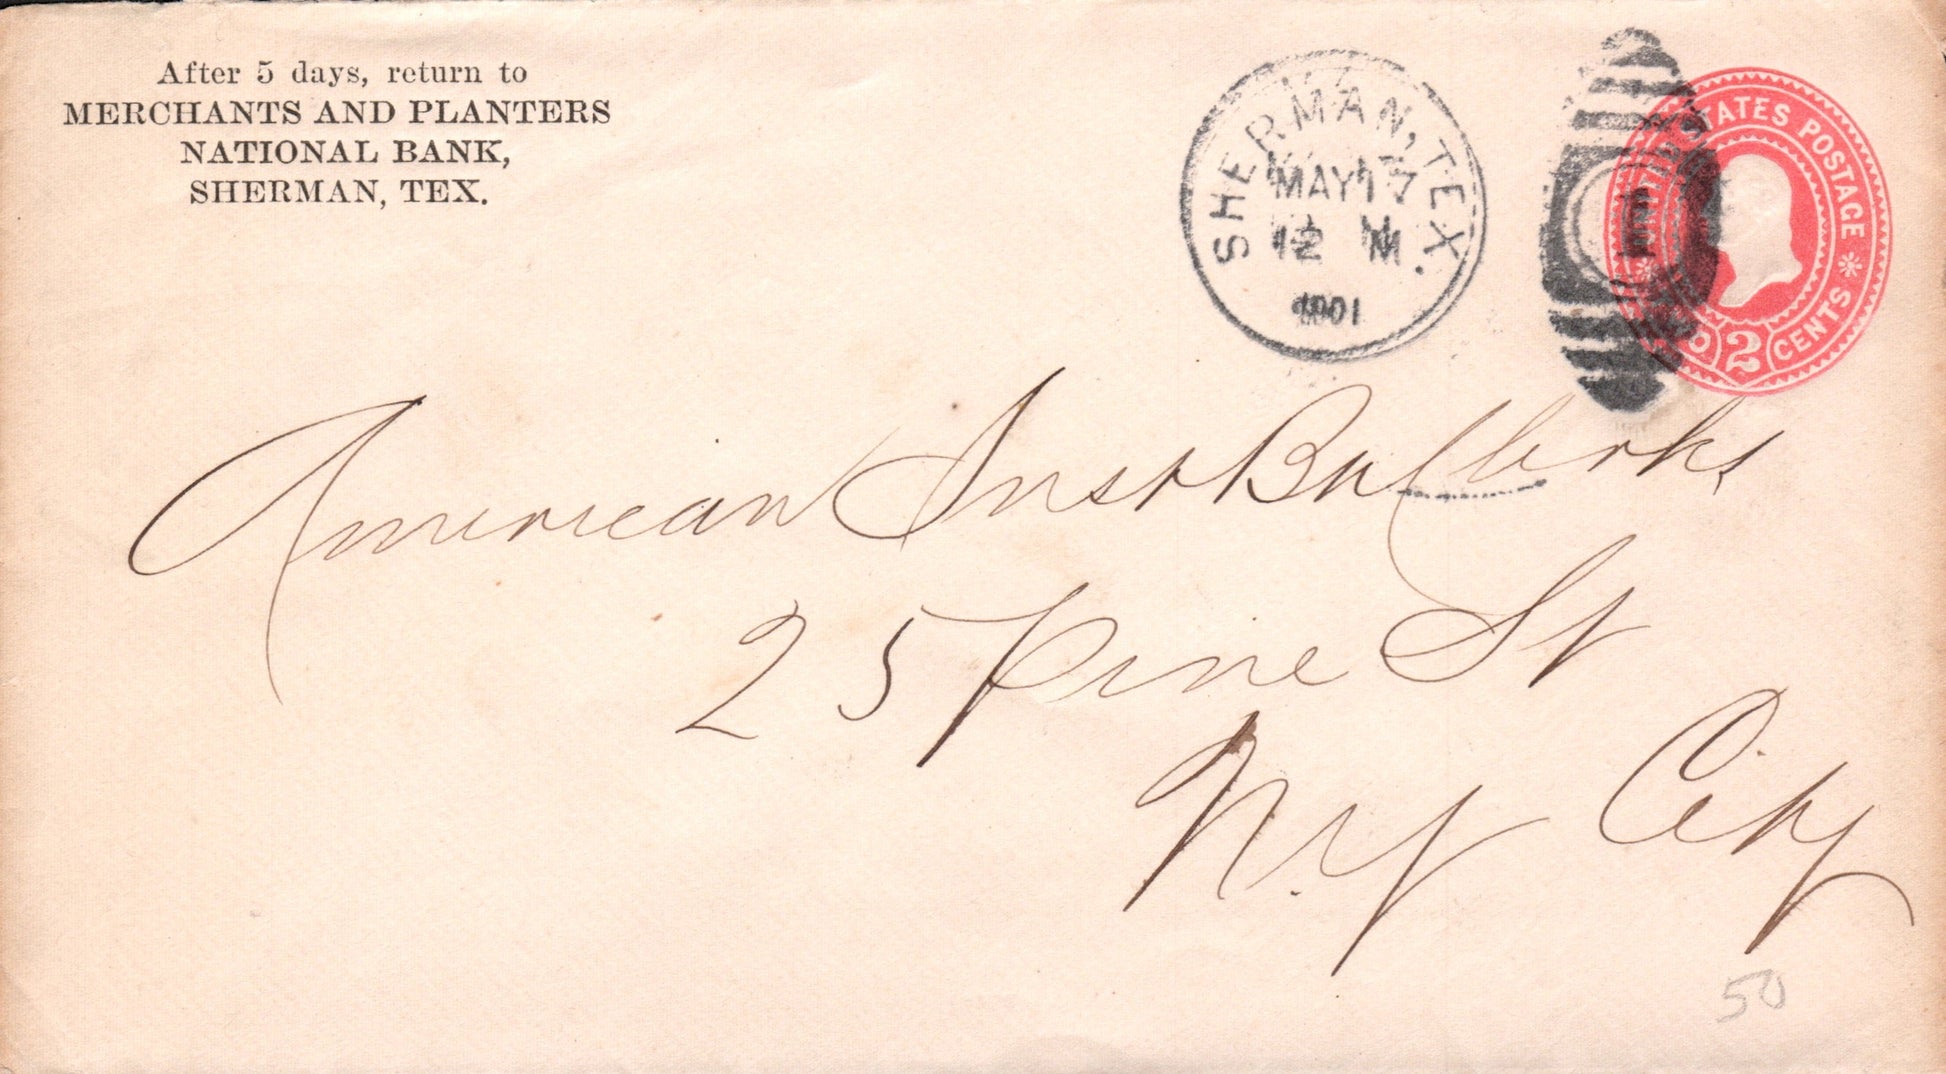 After 5 days, return to
MERCHANTS AND PLANTERS
NATIONAL BANK,
SHERMAN, TEX.
SHERMAN, TEX.
MAY 17
12 M
1901
UNITED STATES POSTAGE
TWO 2 CENTS
American Inst Bk Clerks
25 Pine St
N.Y City
50